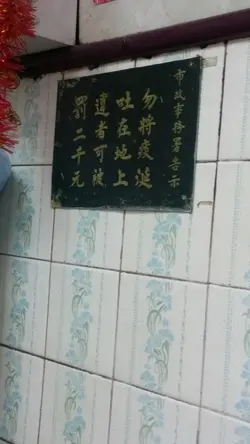 市政事務署告示
勿將痰涎
吐在地上
違者可被
罰二千元